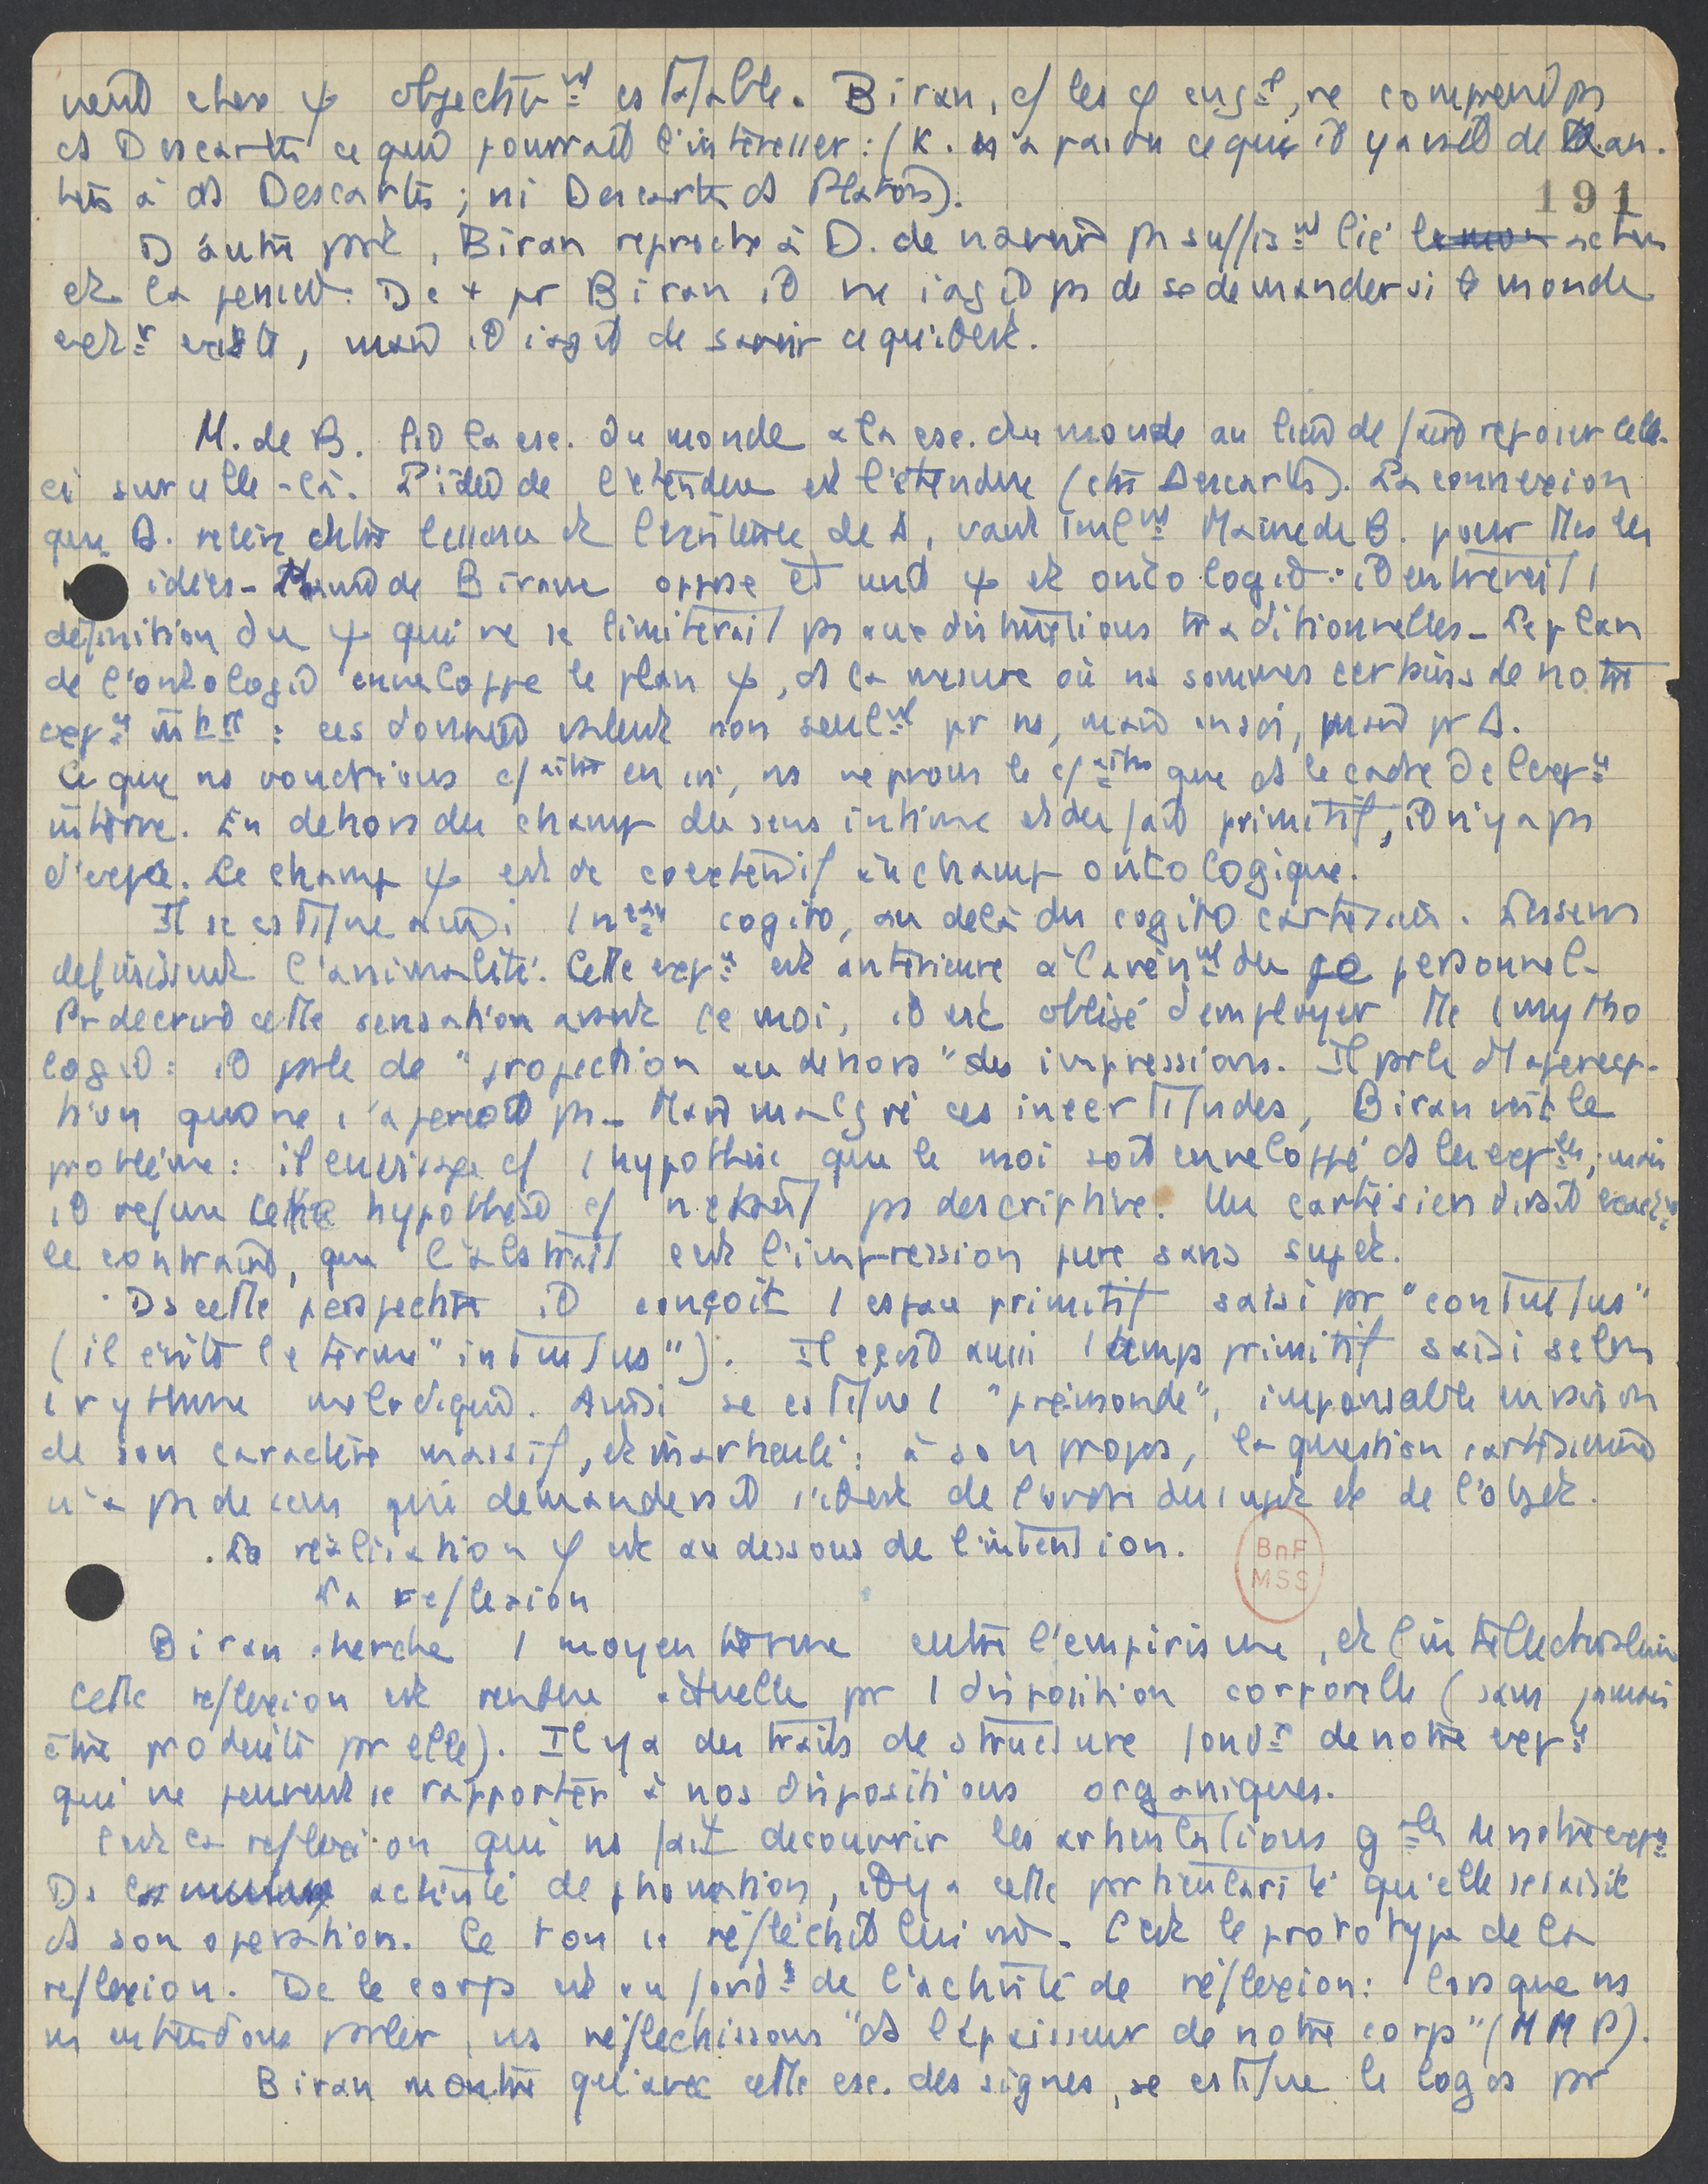 chose ψ objectiv^nt Biran, c/ les φ ang^s, ne comprend ps
ds Descartes ce qui pourrait l'intéresser : (K. n'a pas vu ce qu'il y avait de kan-
tien ds Descartes ; ni Descartes ds Platon).
191
D'autre part, Biran reproche à D. de n'avoir ps suffis^nt lié action
et la pensée. De + pr Biran il ne s'agit ps de se demander si le monde
ext^r existe, mais il s'agit de savoir ce qu'il est.
M. de B. lie la csc. du monde à la csc. du monde au lieu de faire reposer celle-
ci sur celle-là. L'idée de l'étendue est l'étendue (chez Descartes). La connexion
que D. entre l'essence et l'existence de D, vaut Maine de B. pour ttes les
idées - Maine de Biran oppose ψ et ontologie : il entrevoit 1
définition du ψ qui ne se limiterait ps aux distinctions traditionnelles - Le plan
de l'ontologie enveloppe le plan ψ, ds la mesure où ns sommes certains de notre
exp^ce : ces données valent non seul^nt pr ns, mais en soi, mais pr D.
Ce que ns voudrions en soi, ns ne pvons le que ds le cadre de l'exp^ce
interne. En dehors du champ du sens intime et du fait primitif, il n'y a ps
d'exp^ce. Le champ ψ est dc coextensif au champ ontologique.
Il se constitue aussi 1 cogito, au delà du cogito cartésien. Les sens
définissent l'animalité. Cette exp^ce est antérieure à l'avèn^nt du je personnel.
Pr décrire cette sensation avant le moi, il est obligé d'employer tte 1 mytho
logie : il parle de "projection au dehors" des impressions. Il parle d'1 apercep-
tion qui ne s'aperçoit ps - Mais malgré ces incertitudes, Biran voit le
problème : il envisage c/ 1 hypothèse que le moi soit enveloppé ds les exp^ces, mais
il refuse cette hypothèse c/ n'étant ps descriptive. Un cartésien dirait exact^nt
le contraire, que l'abstrait est l'impression pure sans sujet.
Ds cette perspective il conçoit 1 espace primitif saisi pr "contuitus"
(il évite le terme "intuitus"). Il aussi 1 temps primitif saisi selon
1 rythme mélodique. Ainsi se constitue 1 "prémonde", impensable en raison
de son caractère massif, et inarticulé : à son propos, la question cartésienne
n'a ps de sens qui demanderait s'il est de l'ordre du sujet et de l'objet.
. La réalisation φ est au dessous de l'intention.
BnF
MSS
La réflexion
Biran cherche 1 moyen terme entre l'empirisme, et l'intellectualisme
cette réflexion est rendue actuelle pr 1 disposition corporelle (sans jamais
être produite pr elle). Il y a des traits de structure fond^x de notre exp^ce
qui ne peuvent se rapporter à nos dispositions organiques.
C'est la réflexion qui ns fait découvrir les articulations g^les de notre exp^ce
Ds activité de phonation, il y a cette particularité qu'elle se saisit
ds son opération. Le son se réfléchit lui m̂. C'est le prototype de la
réflexion. Dc le corps est au fond de l'activité de réflexion : lorsque ns
ns entendons parler, ns réfléchissons "ds l'épaisseur de notre corps" (M M P).
Biran montre qu'avec cette csc. des signes, se constitue le logos pr